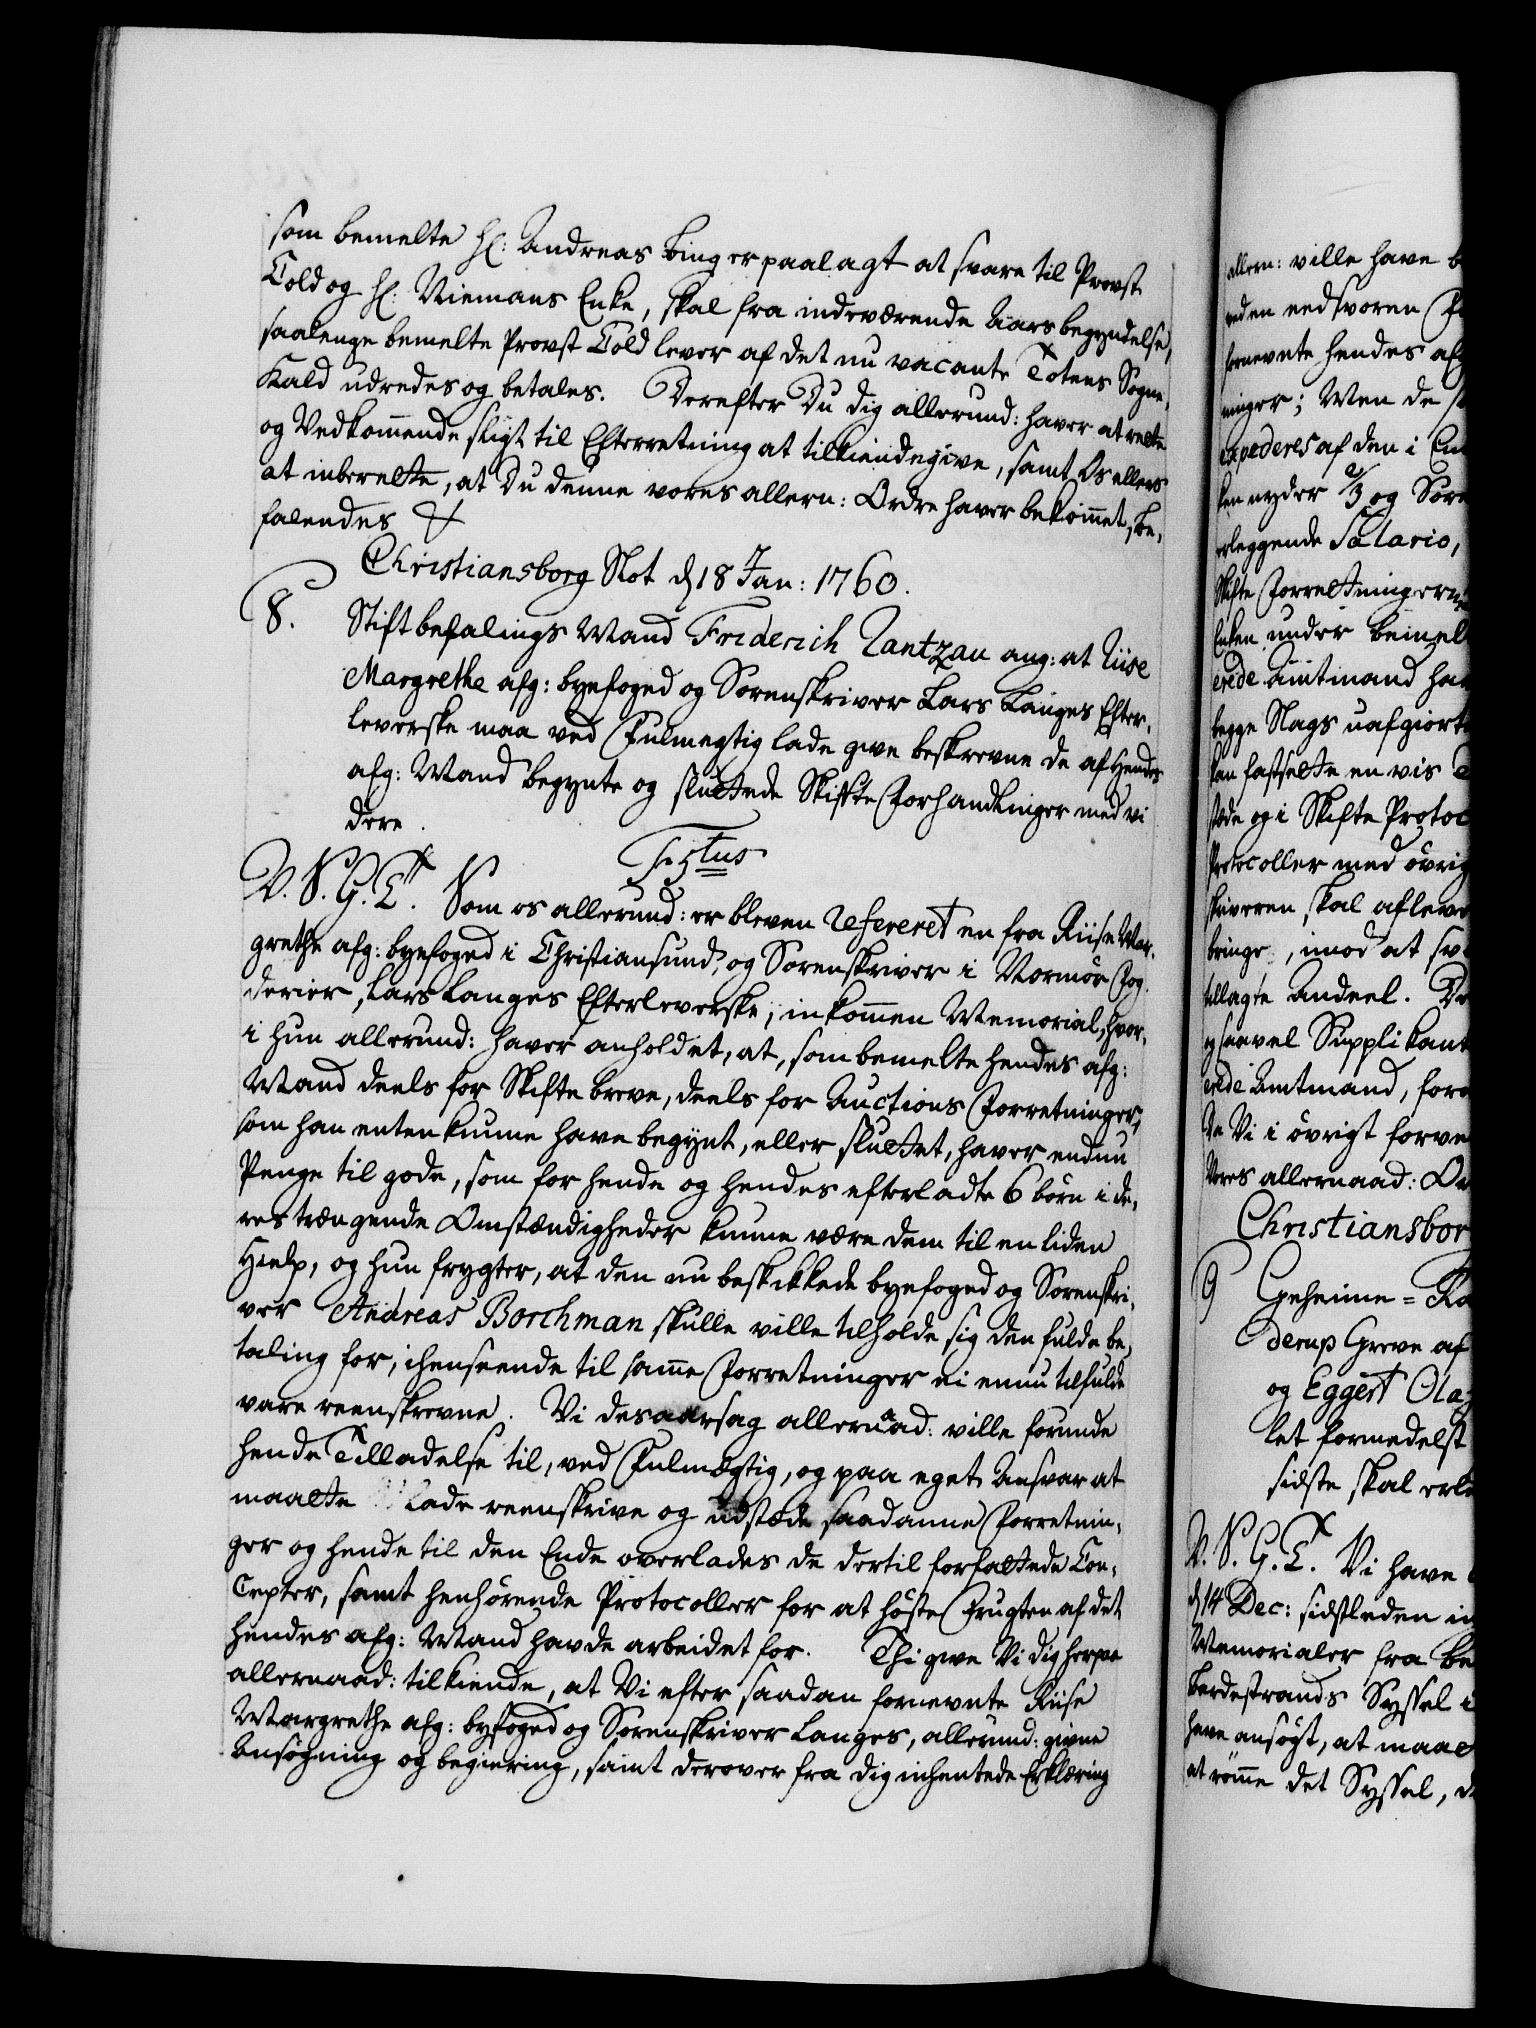 som bemelte Hr: Andreas Bing er paalagt at svare til Provst
Told og Hr: Niemans Enke, skal fra indeværende Aars begyndelse,
saalenge bemelte Provst Told lever af det nu vacante Totens Sogne,
Kald udredes og betales. Derefter Du dig allerund: haver at rette
og Vedkommende sligt til Efterretning at tilkiendegive, samt Os ellers
at inberette, at Du denne vores allern: Ordre haver bekommet, be,
falendes &
Christiansborg Slot d 18 Jan: 1760.
8. Stiftbefalings Mand Friderich Rantzau ang: at Riise
Margrethe afg: byefoged og Sorenskriver Lars Langes Efter,
leverske maa ved Fulmegtig lade give beskrevne de af Hendes
afg: Mand begynte og sluttede Skifte Forhandlinger med vi
dere.
Textus
V. S. G. T. Som os allerund: er bleven refereret en fra Riise Mar,
grethe afg: byefoged i Christiansund, og Sorenskriver i Normør Fog,
derier, Lars Langes Efterleverske, inkommen Memorial, hvor,
i hun allerund: haver anholdet, at, som bemelte hendes afg:
Mand deels for Skifte breve, deels for Auctions Forretninger,
som han enten kunne have begynt, eller sluttet, haver endnu
Penge til gode, som for hende og hendes efterladte 6 børn i de,
res trængende Omstændigheder kunne være dem til en liden
Hielp, og hun frygter, at den nu beskikkede byefoged og Sorenskri,
ver Andreas Borchman skulle ville tilholde sig den fulde be,
taling for, i henseende til samme Forretninger ei ennu tilfulde
vare reenskrevne. Vi desaarsag allernaad: ville forunde
hende Tilladelse til, ved Fulmægtig, og paa eget Ansvar at
maatte lade reenskrive og udstæde saadanne Forretnin,
ger og hende til den Ende overlades de dertil forfattede Con,
cepter, samt henhørende Protocoller for at høste Frugten af det
hendes afg: Mand havde arbeidet for. Thi give Vi dig herpaa
allernaad: tilkiende, at Vi efter saadan fornevnte Riise
Margrethe afg: byfoged og Sorenskriver Langes, allerund: givne
Ansøgning og begiering, samt derover fra dig inhentede Erklæring
allern: ville have
eedsvoren
fornevnte hendes
ninger; Men de
expederes af den i
nyder 2/3 og
erleggende Salario,
Skifte Forretningerne
Enken under
Amtmand
begge Slags uafgiorte
fastsette en vis
og i Skifte Protoc
Protocoller med øvrig
skriveren skal
bringe, imod at
tillagte Andeel.
saavel Supplikant
Amtmand,
Vi i øvrigt
Vores allernaad:
Christiansbor
9 Geheime=
derup Greve af
og Eggert
let formedelst
sidste skal
V. S. G. T. Vi have
d 14 Dec: sidstleden
Memorialer fra
Bardestrands Syssel i
have ansøgt, at
at rømme det Syssel,